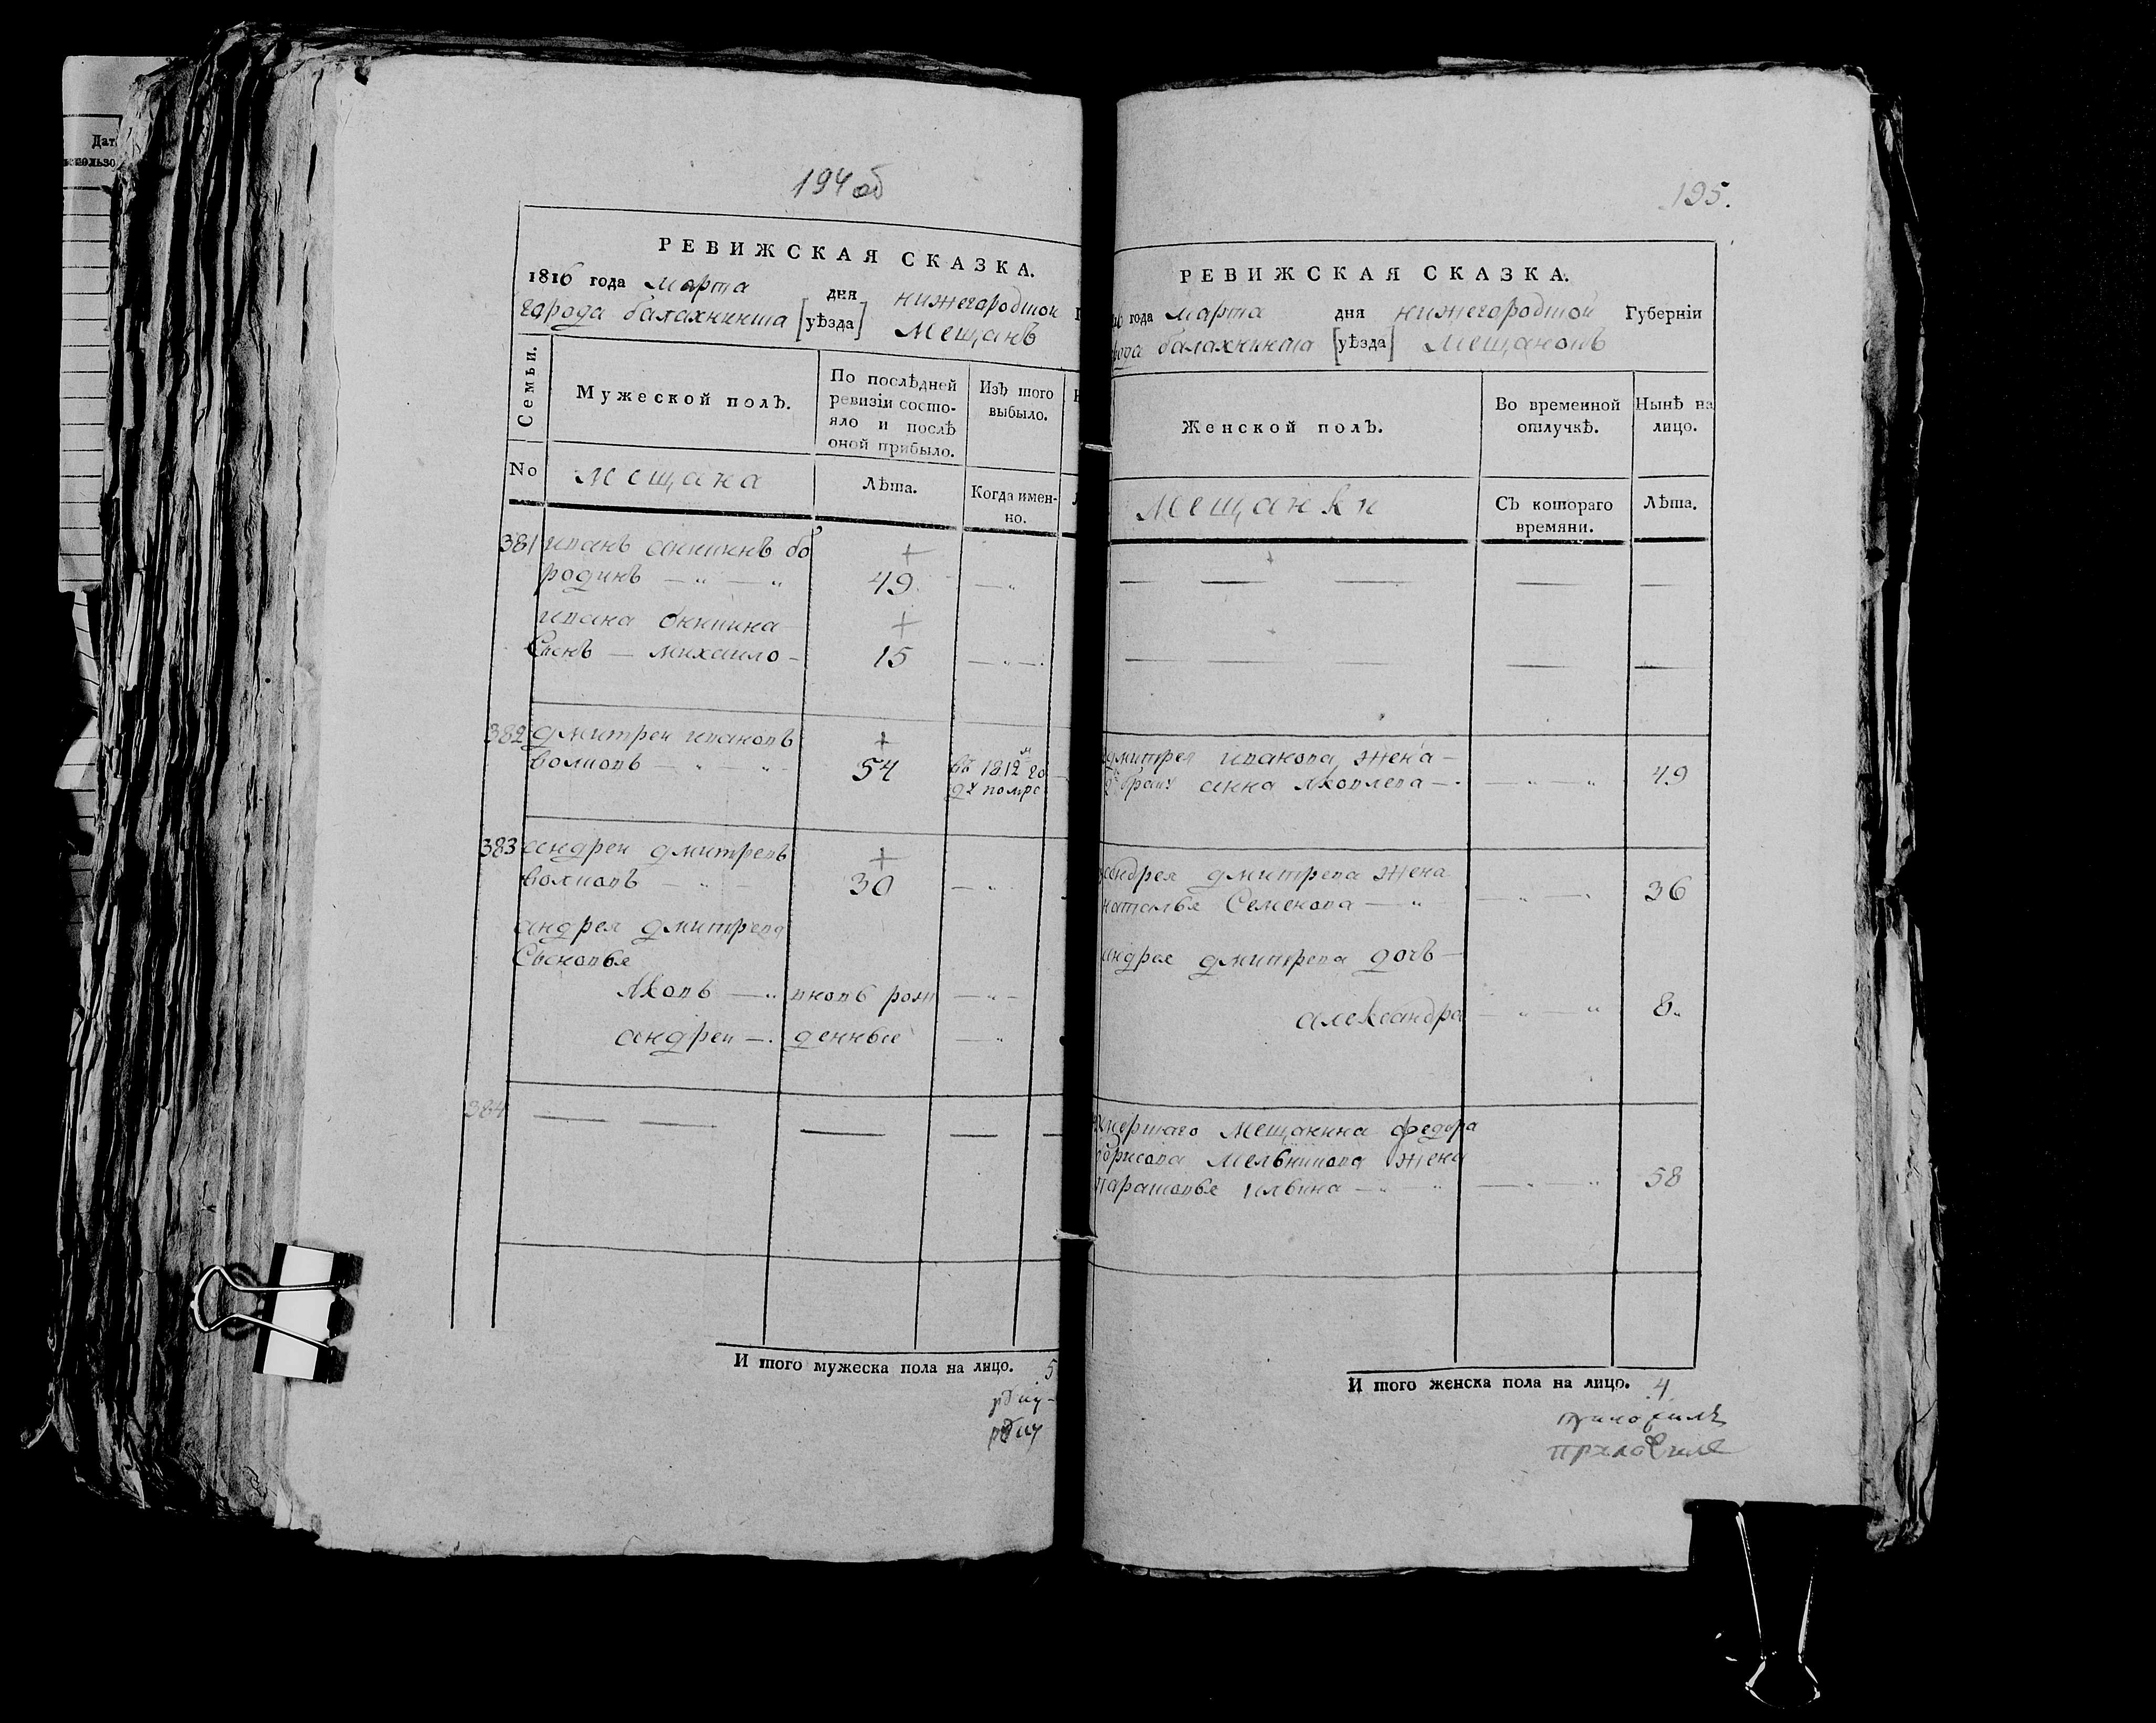 Дат
использо
194 об
РЕВИЖСКАЯ СКАЗКА.
1816 года марта дня нижегородской
города балахнинша [уѣзда] Мещанъ
Семьи.
Мужеской полъ.
По послѣдней
ревизіи состо-
яло и послѣ
оной прибыло.
Изъ того
выбыло.
No
мещана
Лѣта.
Когда имен-
но.
381 иванъ аникинъ бо
родинъ 49
ивана аникина
Сынъ михаило 15
382 дмитреи ивановъ
волковъ 54 въ 1812м го
ду помре
383 андреи дмитревъ
волковъ 30
андрея дмитрева
Сыновья
Яковъ вновь рож
андреи денные
384
И того мужеска пола на лицо. 5
195.
РЕВИЖСКАЯ СКАЗКА.
года марта дня нижегородской Губерніи
балахнинша [уѣзда] Мещановъ
Женской полъ.
Во временной
отлучкѣ.
Нынѣ на
лицо.
Мещанки
Съ котораго
времяни.
Лѣта.
дмитрея иванова жена
2 браку анна Яковлева 49
андрея дмитрева жена
наталья Семенова 36
андрея дмитрева дочь
александра 8
умершаго мещанина федора
борисова Мельникова жена
парасковья ильина 58
И того женска пола на лицо. 4